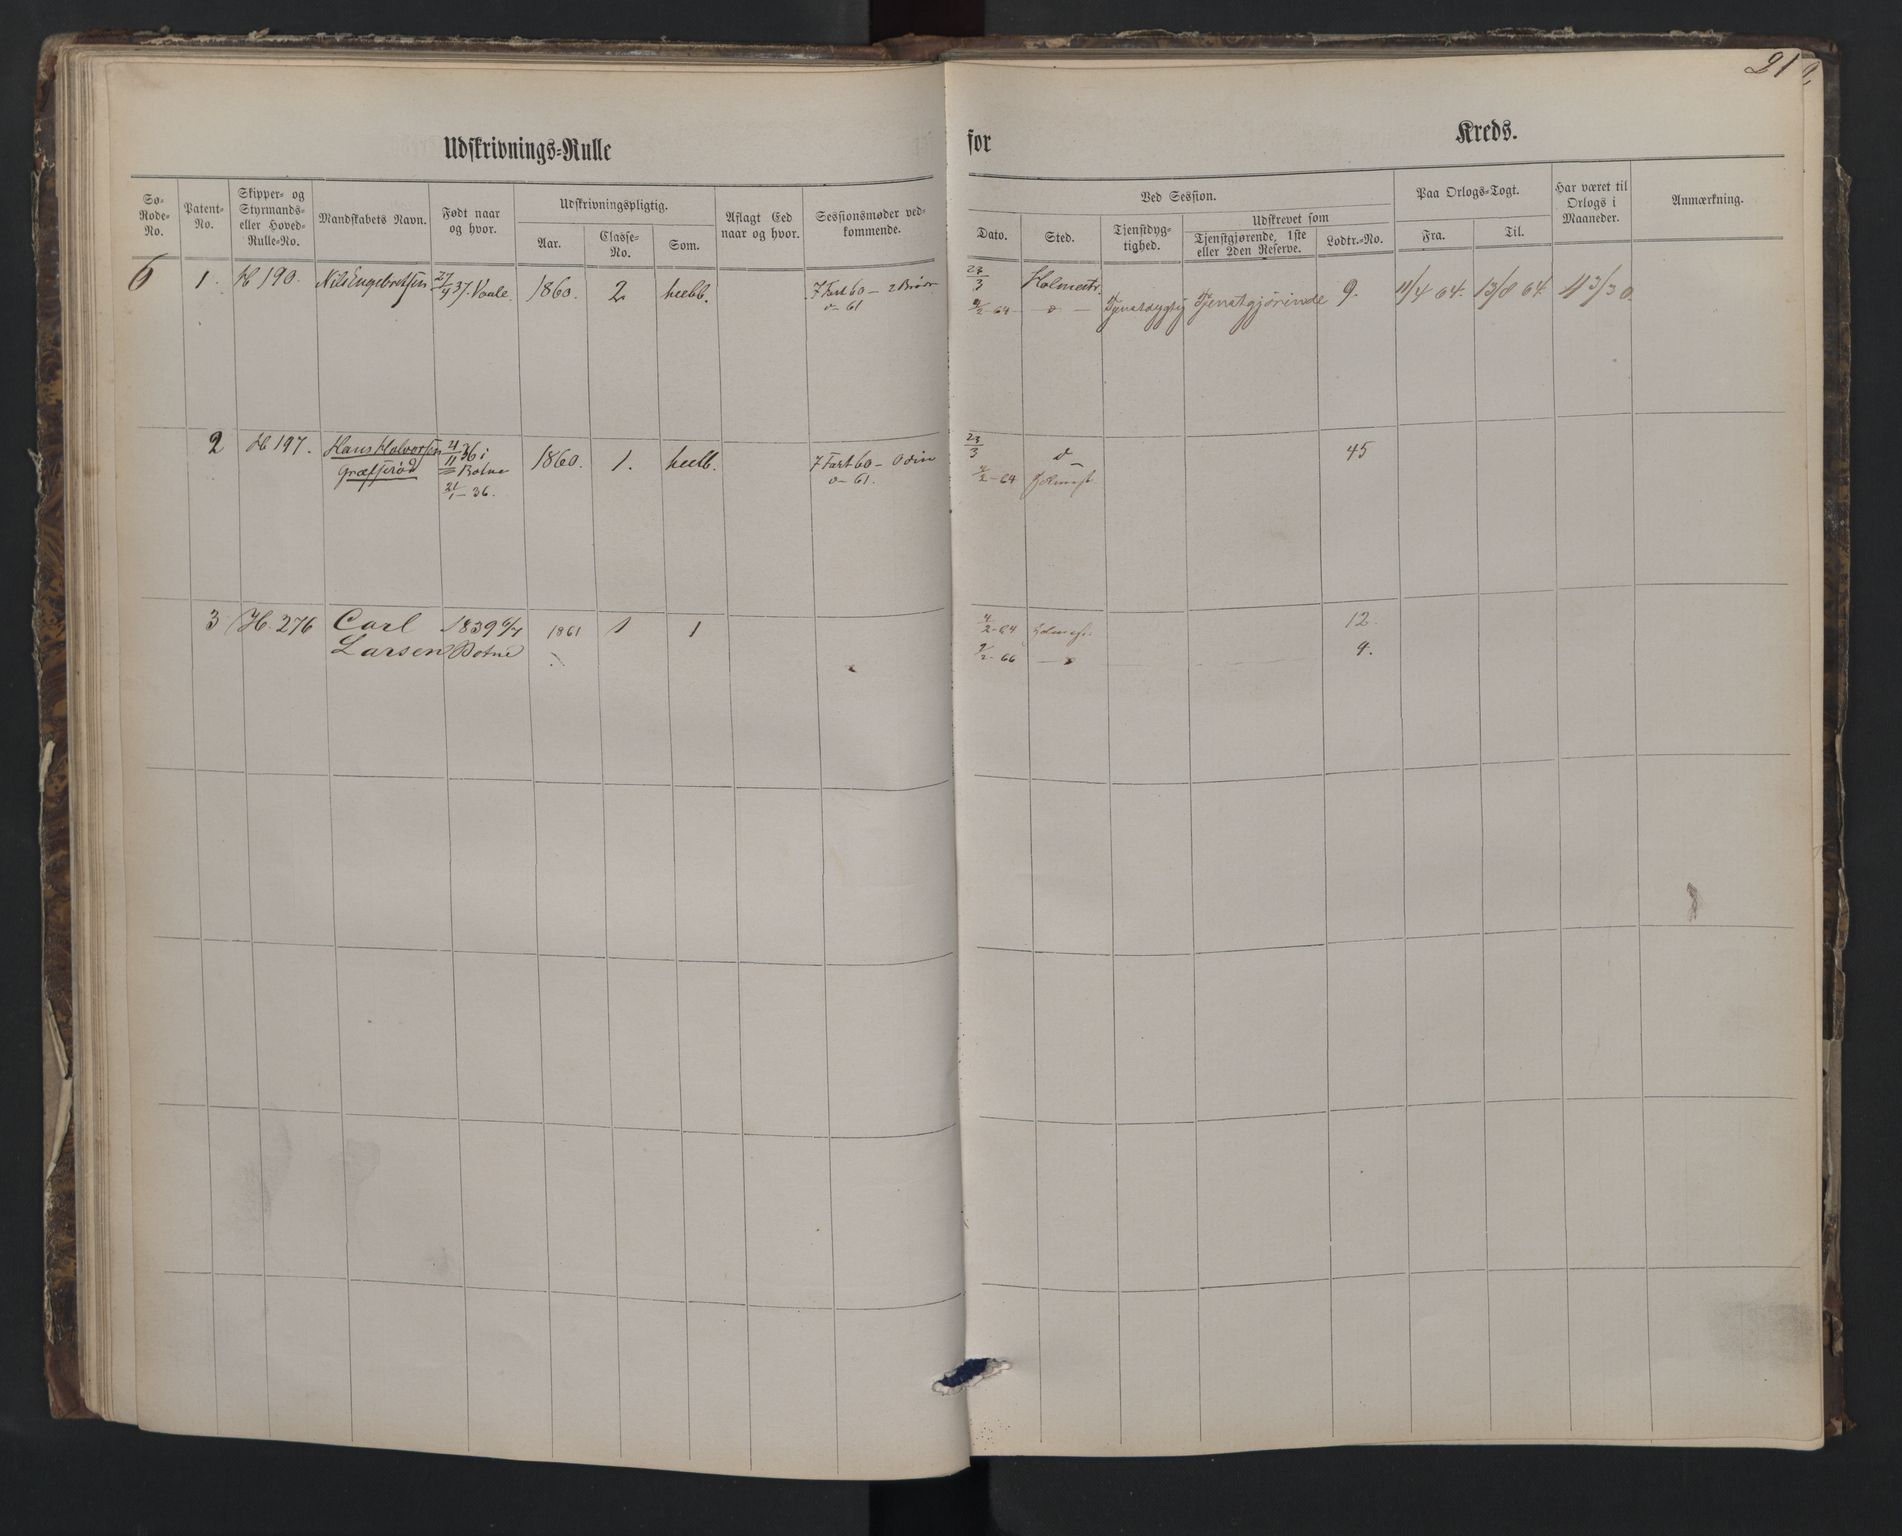 21
Udskrivnings-Rulle for Kreds.
Sø-Rode-No. Patent-No. Skipper- og Styrmands- eller Hoved-Rulle-No. Mandskabets Navn. Født naar og hvor. Udskrivningspligtig. Aar. Classe-No. Som. Aflagt Eed naar og hvor. Sessionsmøder vedkommende.
Ved Session. Dato. Sted. Tjenstdygtighed. Udskrevet som Tjenstgjørende, 1ste eller 2den Reserve. Lodtr.-No. Paa Orlogs-Togt. Fra. Til. Har været til Orlogs i Maaneder. Anmærkning.
6 1. H 190. Nils Engebretsen 27/9 37. Vaale. 1860. 2 heelb. 7 Fart 60 – 2 Brødr 23/3 Holmestr.
61 9/2-64 Tjenstdygtig Tjenstgjørende 9. 11/4 64. 13/8 64.
2 H 197. Hans Halvorsen 36 i 1860. 1. heelb. 7 Fart 60 – Odin 23/3 45
Græfserød Botne 61. 2-64
21/1 – 36.
3 H. 276 Carl 1839 1861 1 1 2-64 12.
Larsen Botne 2-66 4.